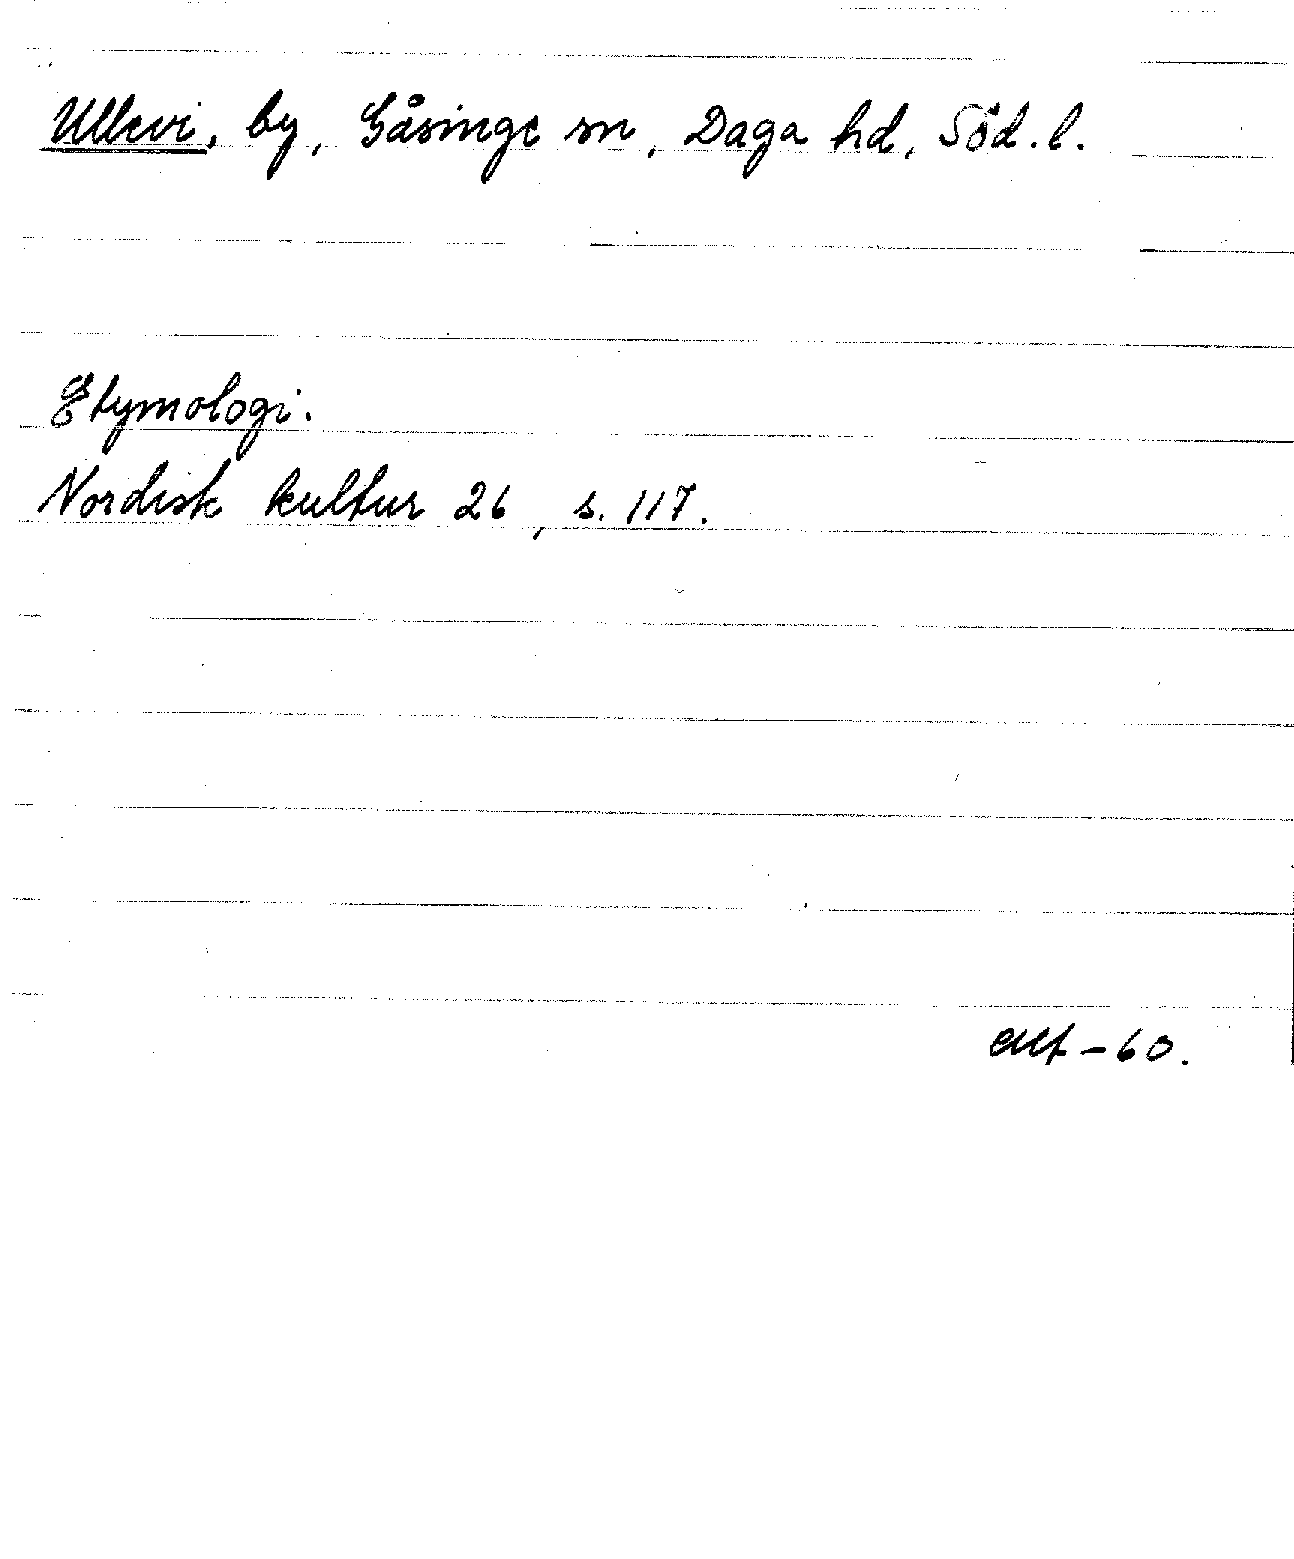 Ullevi, by, Gåsinge sn, Daga hd, Söd. l.
Etymologi.
Nordisk kultur 26, s. 117.
-60.